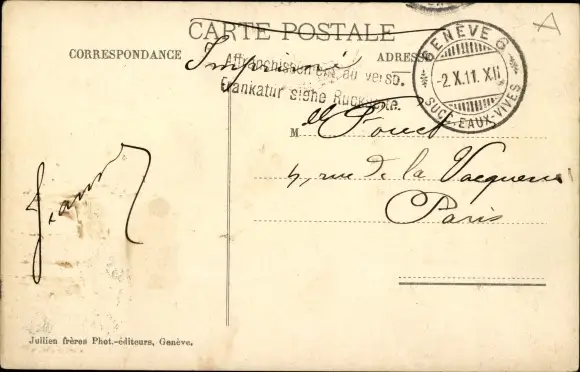 CARTE POSTALE
CORRESPONDANCE
ADRESSE
Imprimé
Affranchissement au verso.
Frankatur siehe Rückseite.
GENÈVE 6
-2.X.11.XII
SUCC. EAUX-VIVES
Mlle Fouet
4, rue de la Vacquerie
Paris
Jullien frères Phot.-éditeurs, Genève.